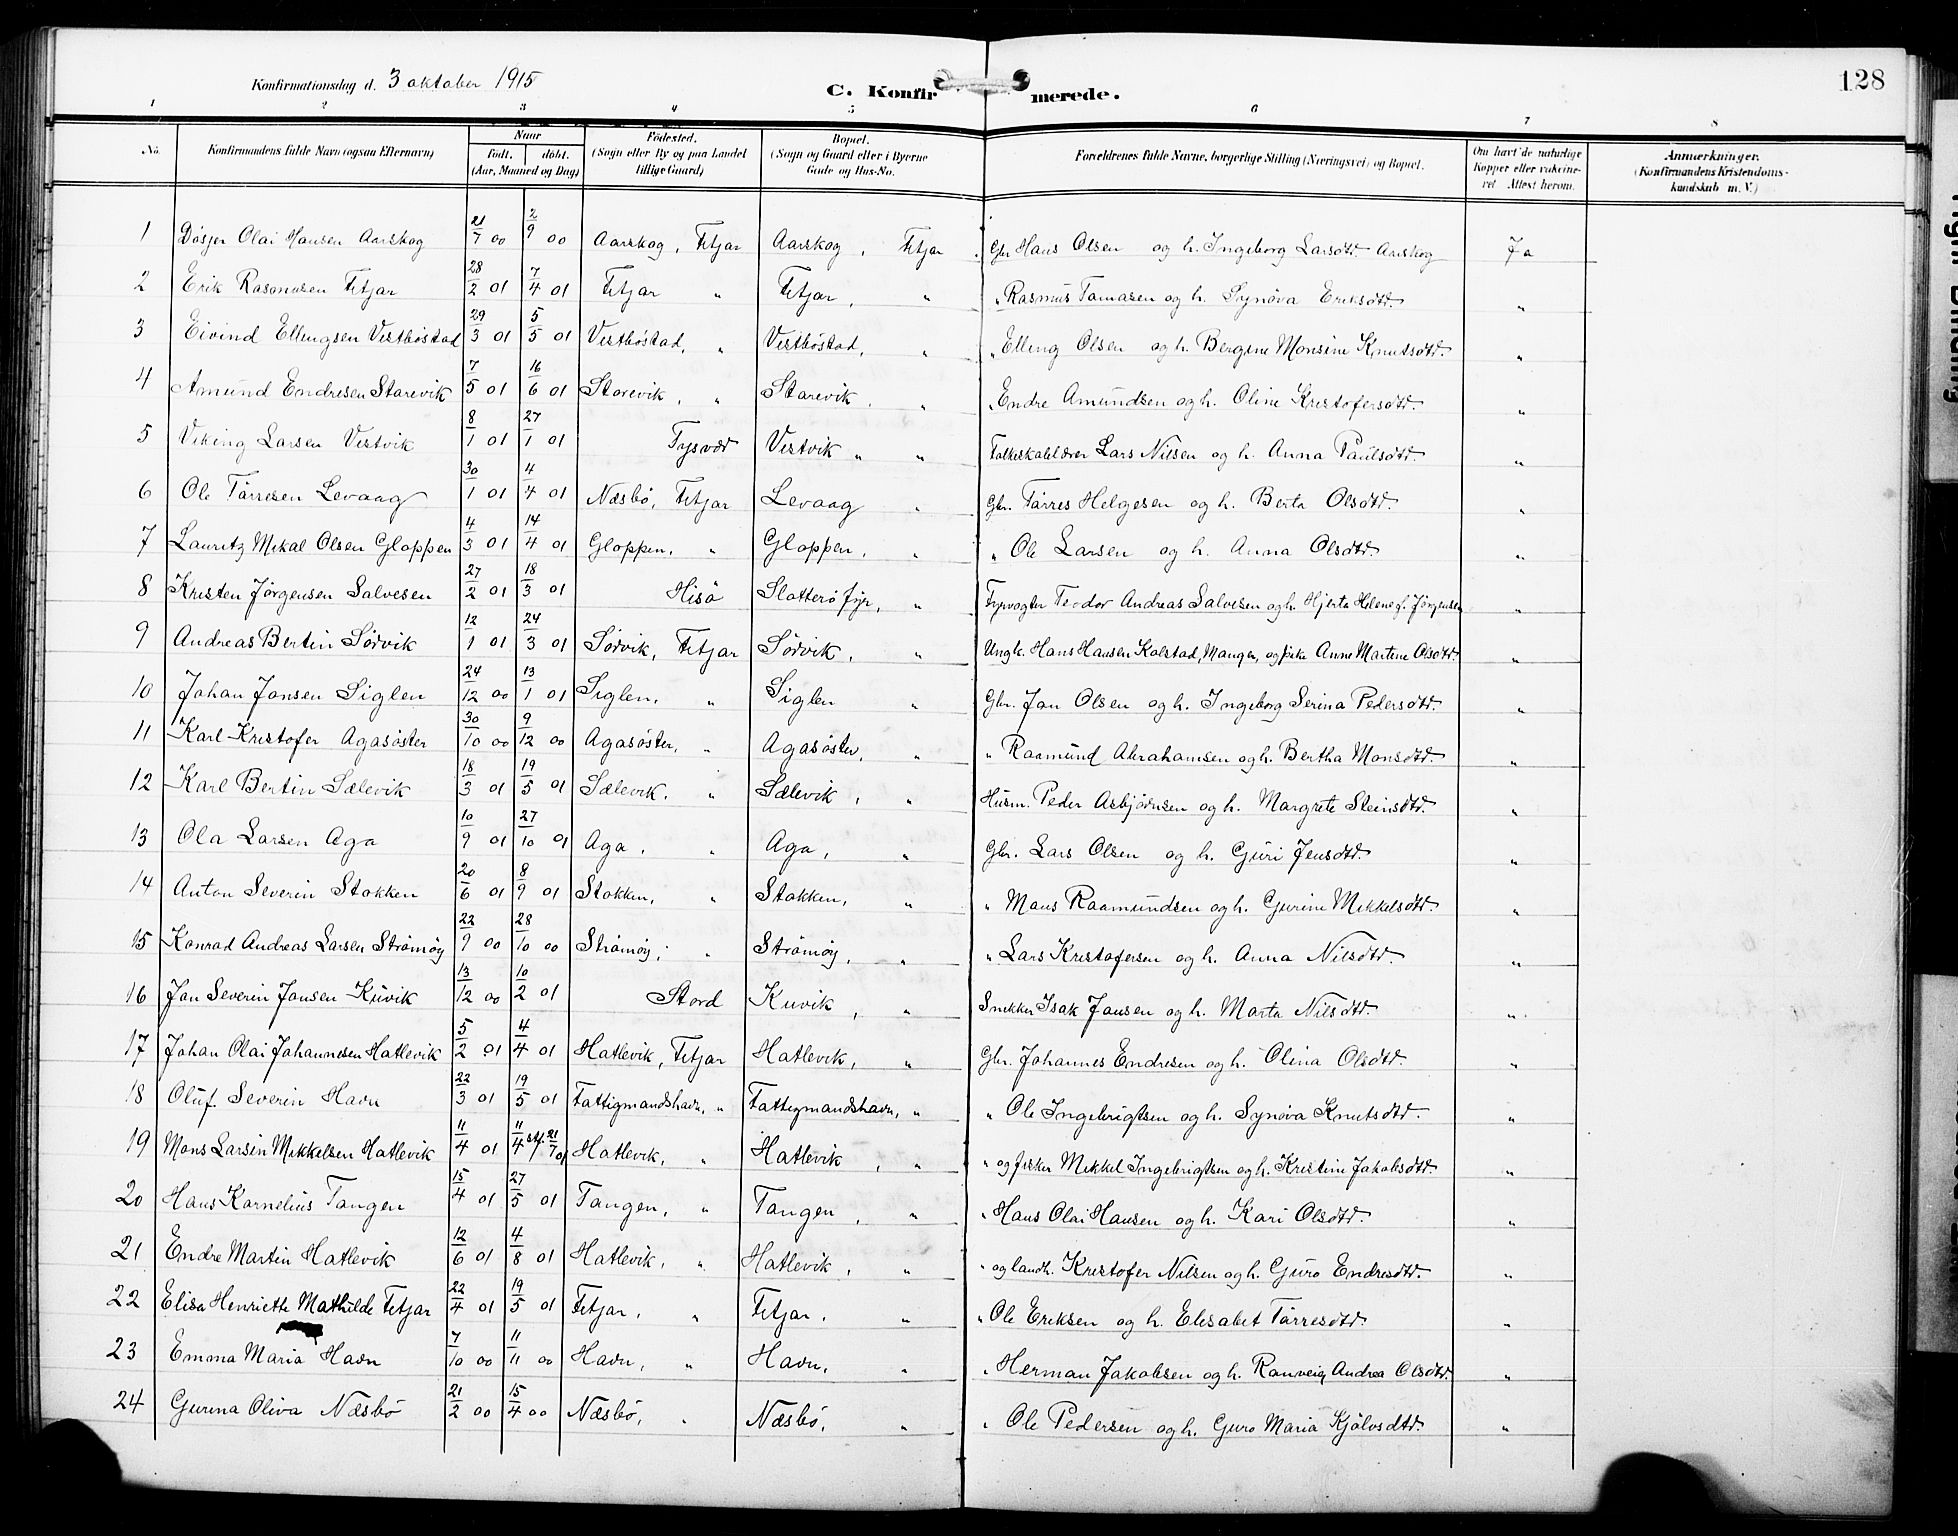 128
Konfirmationsdag d. 3 oktober 1915
C. Konfirmerede.
1 2 3 4 5 6 7 8
No. Konfirmandens fulde Navn (ogsaa Efternavn) Naar født. døbt. (Aar, Maaned og Dag) Fødested. (Sogn eller By og paa Landet tillige Gaard) Bopæl. (Sogn og Gaard eller i Byerne Gade og Hus-No. Forældrenes fulde Navne, borgerlige Stilling (Næringsvei) og Bopæl. Om havt de naturlige Kopper eller vakcineret. Attest herom. Anmærkninger. (Konfirmandens Kristendomskundskab m. V.)
1 Døsjer Olai Hansen Aarskog 21/7 00 2/9 00 Aarskog, Fitjar Aarskog, Fitjar Gbr Hans Olsen og h. Ingeborg Larsdtr. Aarskog Ja
2 Erik Rasmusen Fitjar 28/2 01 7/4 01 Fitjar " Fitjar, " " Rasmus Tomasen og h. Synøva Eriksdtr. "
3 Eivind Ellingsen Vestbøstad 29/3 01 5/5 01 Vestbøstad, " Vestbøstad, " " Elling Olsen og h. Bergine Monsine Knutsdtr. "
4 Amund Endresen Starevik 7/5 01 16/6 01 Storevik, " Starevik, " " Endre Amundsen og h. Oline Kristofersdtr. "
5 Viking Larsen Vestvik 8/1 01 27/1 01 Tysvær Vestvik " " Folkeskolelærer Lars Nilsen og h. Anna Paulsdtr. "
6 Ole Tørresen Levaag 30/1 01 4/4 01 Næsbø, Fitjar Levaag " Gbr. Tørres Helgesen og h. Berta Olsdtr. "
7 Lauritz Mikal Olsen Gloppen 4/3 01 14/4 01 Gloppen, " Gloppen, " " Ole Larsen og h. Anna Olsdtr "
8 Kristen Jørgensen Salvesen 27/2 01 18/3 01 Hisø Slotterø fyr, " Fyrvogter Teodor Andreas Salvesen og h. Hjerta Helene f. Jørgensen "
9 Andreas Bertin Sørvik 12/1 01 24/3 01 Sørvik, Fitjar Sørvik, " Ungk. Hans Hansen Kolstad, Manger, og pike Anne Martine Olsdtr. "
10 Johan Jansen Siglen 24/12 00 13/1 01 Siglen, " Siglen " Gbr. Jan Olsen og h. Ingeborg Serina Pedersdtr. "
11 Karl Kristofer Agasøster 30/10 00 9/12 00 Agasøster, " Agasøster, " " Raamund Abrahamsen og h. Bertha Monsdtr. "
12 Karl Bertin Sælevik 18/3 01 19/5 01 Sælevik, " Sælevik, " Husm. Peder Asbjørnsen og h. Margrete Steinsdtr. "
13 Ola Larsen Aga 10/9 01 27/10 01 Aga, " Aga, " Gbr. Lars Olsen og h. Guri Jensdtr. "
14 Anton Severin Stokken 20/6 01 8/9 01 Stokken, " Stokken, " " Mons Raamundsen og h. Gurine Mikkelsdtr. "
15 Konrad Andreas Larsen Strømøy 22/9 00 28/10 00 Strømøy, " Strømøy, " " Lars Kristofersen og h. Anna Nilsdtr. "
16 Jan Severin Jansen Kuvik 13/12 00 10/2 01 Stord Kuvik, " Snekker Isak Jansen og h. Marta Nilsdtr. "
17 Johan Olai Johannesen Hatlevik 5/2 01 4/4 01 Hatlevik, Fitjar Hatlevik, " Gbr. Johannes Endresen og h. Olina Olsdtr. "
18 Oluf Severin Havn 22/3 01 19/5 01 Fattigmandshavn, " Fattigmandshavn, " " Ole Ingebrigtsen og h. Synøva Knutsdtr. "
19 Mons Larsin Mikkelsen Hatlevik 11/4 01 11/4 21/7 01 Hatlevik, " Hatlevik, " " og fisker Mikkel Ingebrigtsen og h. Kristine Jakobsdtr. "
20 Hans Kornelius Tangen 15/4 01 27/5 01 Tangen, " Tangen, " " Hans Olai Hansen og h. Kari Olsdtr. "
21 Endre Martin Hatlevik 12/6 01 4/8 01 Hatlevik, " Hatlevik, " " og landh. Kristofer Nilsen og h. Guro Endresdtr. "
22 Elisa Henriette Mathilde Fitjar 22/4 01 19/5 01 Fitjar, " Fitjar, " " Ole Eriksen og h. Elisabet Tørresdtr. "
23 Emma Maria Havn 7/10 00 11/11 00 Havn, " Havn, " " Herman Jakobsen og h. Ranveig Andrea Olsdtr. "
24 Gurina Oliva Næsbø 21/2 00 15/4 00 Næsbø, " Næsbø, " " Ole Pedersen og h. Guro Maria Kjølvsdtr. "